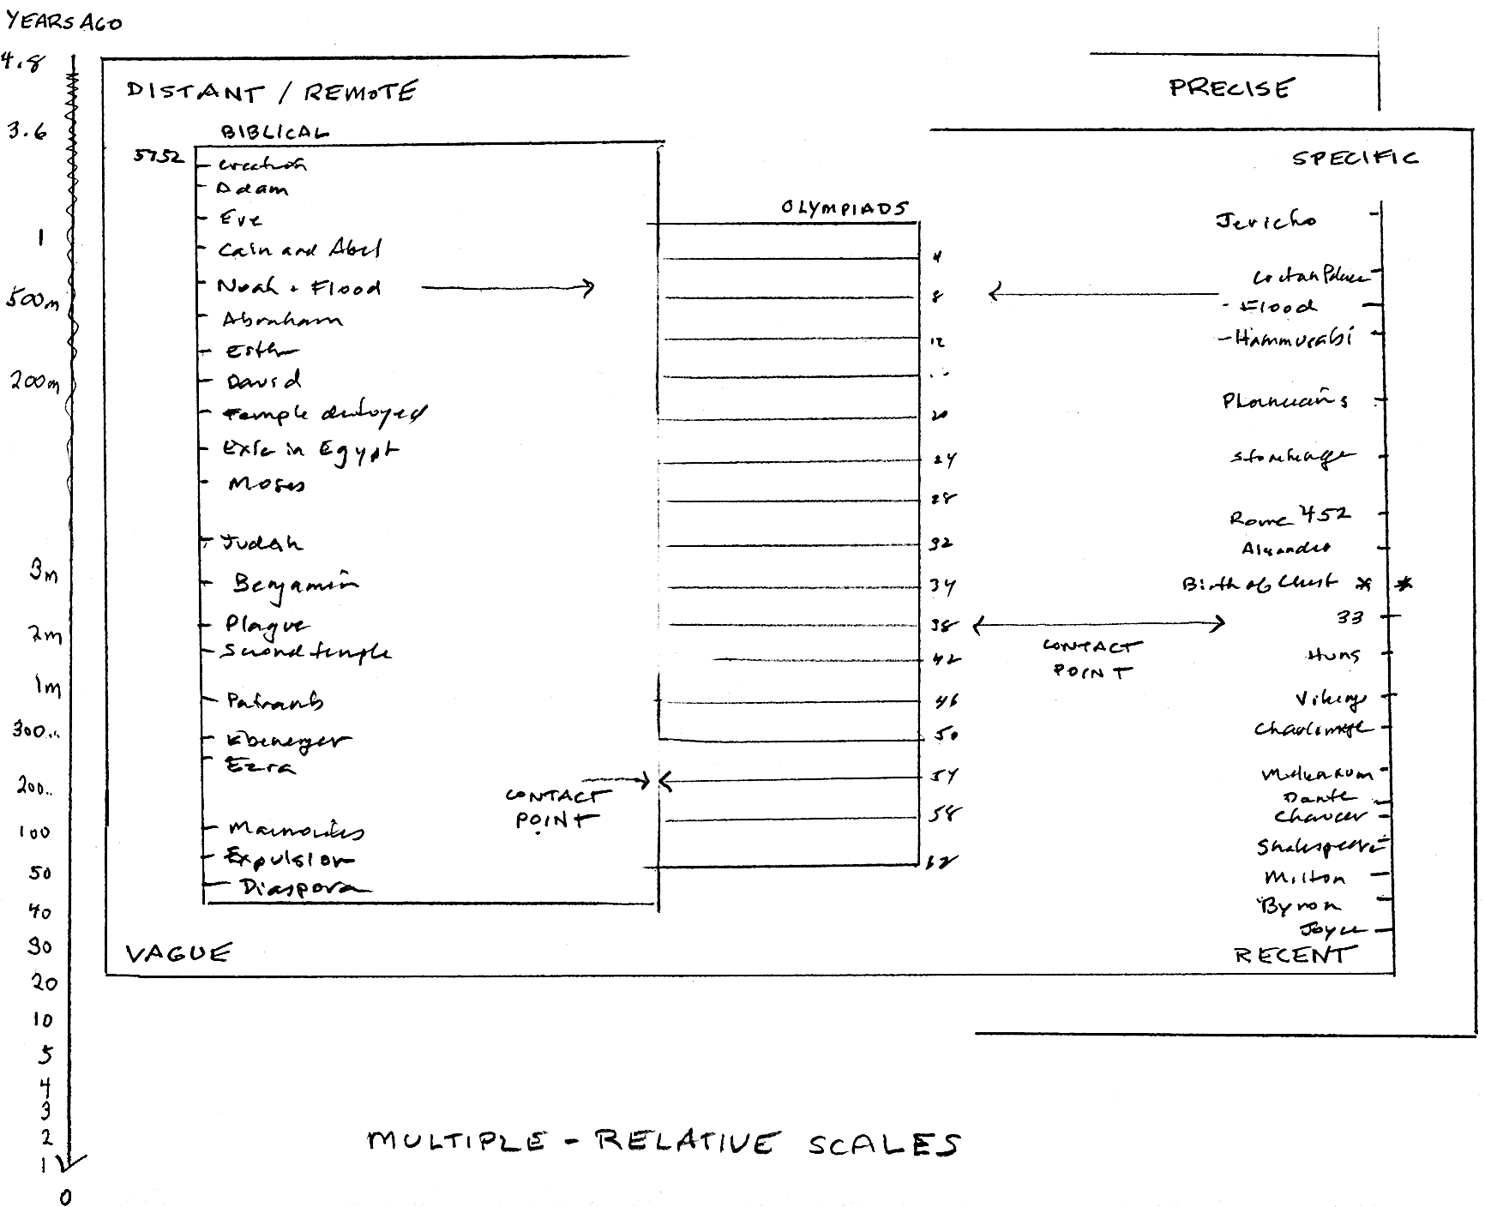 YEARS AGO
4.8
3.6
1
500m
200m
3m
2m
1m
300..
200..
100
50
40
30
20
10
5
4
3
2
1
0
DISTANT / REMOTE
BIBLICAL
5752
creation
Adam
Eve
Cain and Abel
Noah + Flood
Abraham
Esther
David
Temple destroyed
Exile in Egypt
Moses
Judah
Benjamin
Plague
Second temple
Ebenezer
Ezra
Maimonides
Expulsion
Diaspora
VAGUE
CONTACT
POINT
OLYMPIADS
4
8
12
..
20
24
28
32
34
38
42
46
50
54
58
62
CONTACT
POINT
PRECISE
SPECIFIC
Jericho
- Flood
- Hammurabi
Phoenicians
Stonehenge
Rome 452
Alexander
Birth of Christ * *
33
Huns
Vikings
Charlemagne
Dante
Chaucer
Shakespeare
Milton
Byron
Joyce
RECENT
MULTIPLE - RELATIVE SCALES